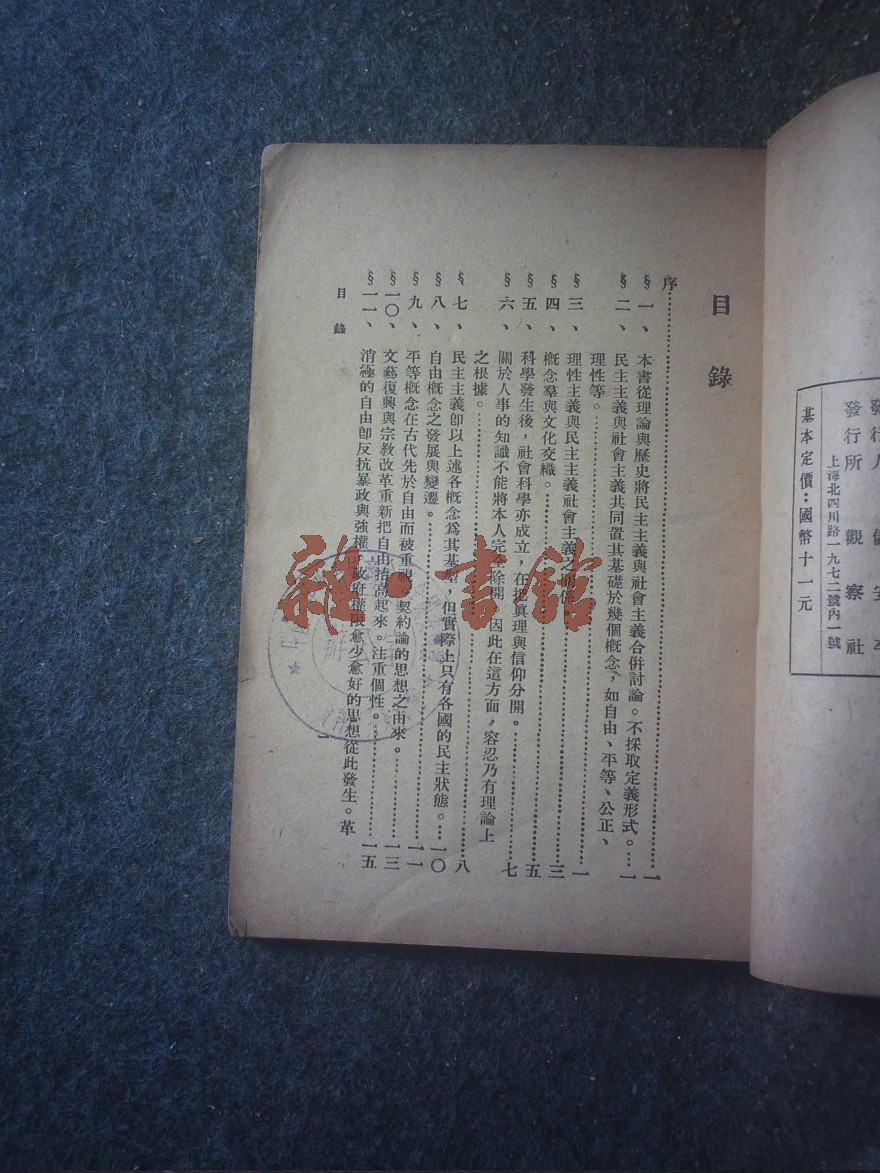 發行人 儲安
發行所 觀察社
上海北四川路一九七二號內一號
基本定價：國幣十一元
目錄
序……一
§一、本書從理論與歷史將民主主義與社會主義合併討論。不採取定義形式。…一
§二、民主主義與社會主義共同置其基礎於幾個概念，如自由、平等、公正、
理性等。……一
§三、理性主義與民主主義社會主義之關係。……三
§四、概念羣與文化交織。……五
§五、科學發生後，社會科學亦成立，在把眞理與信仰分開。……七
§六、關於人事的知識不能將本人完全除開。因此在這方面，容忍乃有理論上
之根據。……八
§七、民主主義卽以上述各概念爲其基型，但實際上只有各國的民主狀態。…一〇
§八、自由概念之發展與變遷。……一一
§九、平等概念在古代先於自由而被重視。契約論的思想之由來。……一三
§一〇、文藝復興與宗教改革重新把自由抬高起來。注重個性。……一五
§一一、消極的自由卽反抗暴政與強權。政府權限愈少愈好的思想從此發生。革
目錄
一
雜·書館